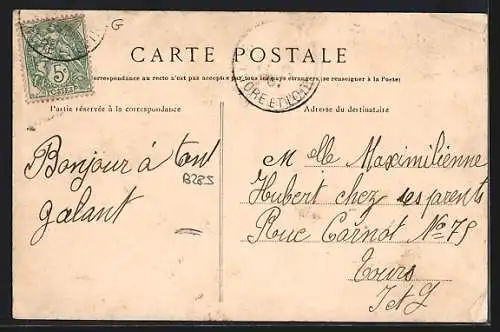 G
5c
POSTES
CARTE POSTALE
La correspondance au recto n'est pas acceptée par tous les pays étrangers (se renseigner à la Poste)
Partie réservée à la correspondance
Adresse du destinataire
INDRE ET LOIRE
Bonjour à ton
galant
B285
Melle Maximilienne
Hubert chez ses parents
Rue Carnot No 75
Tours
I et L